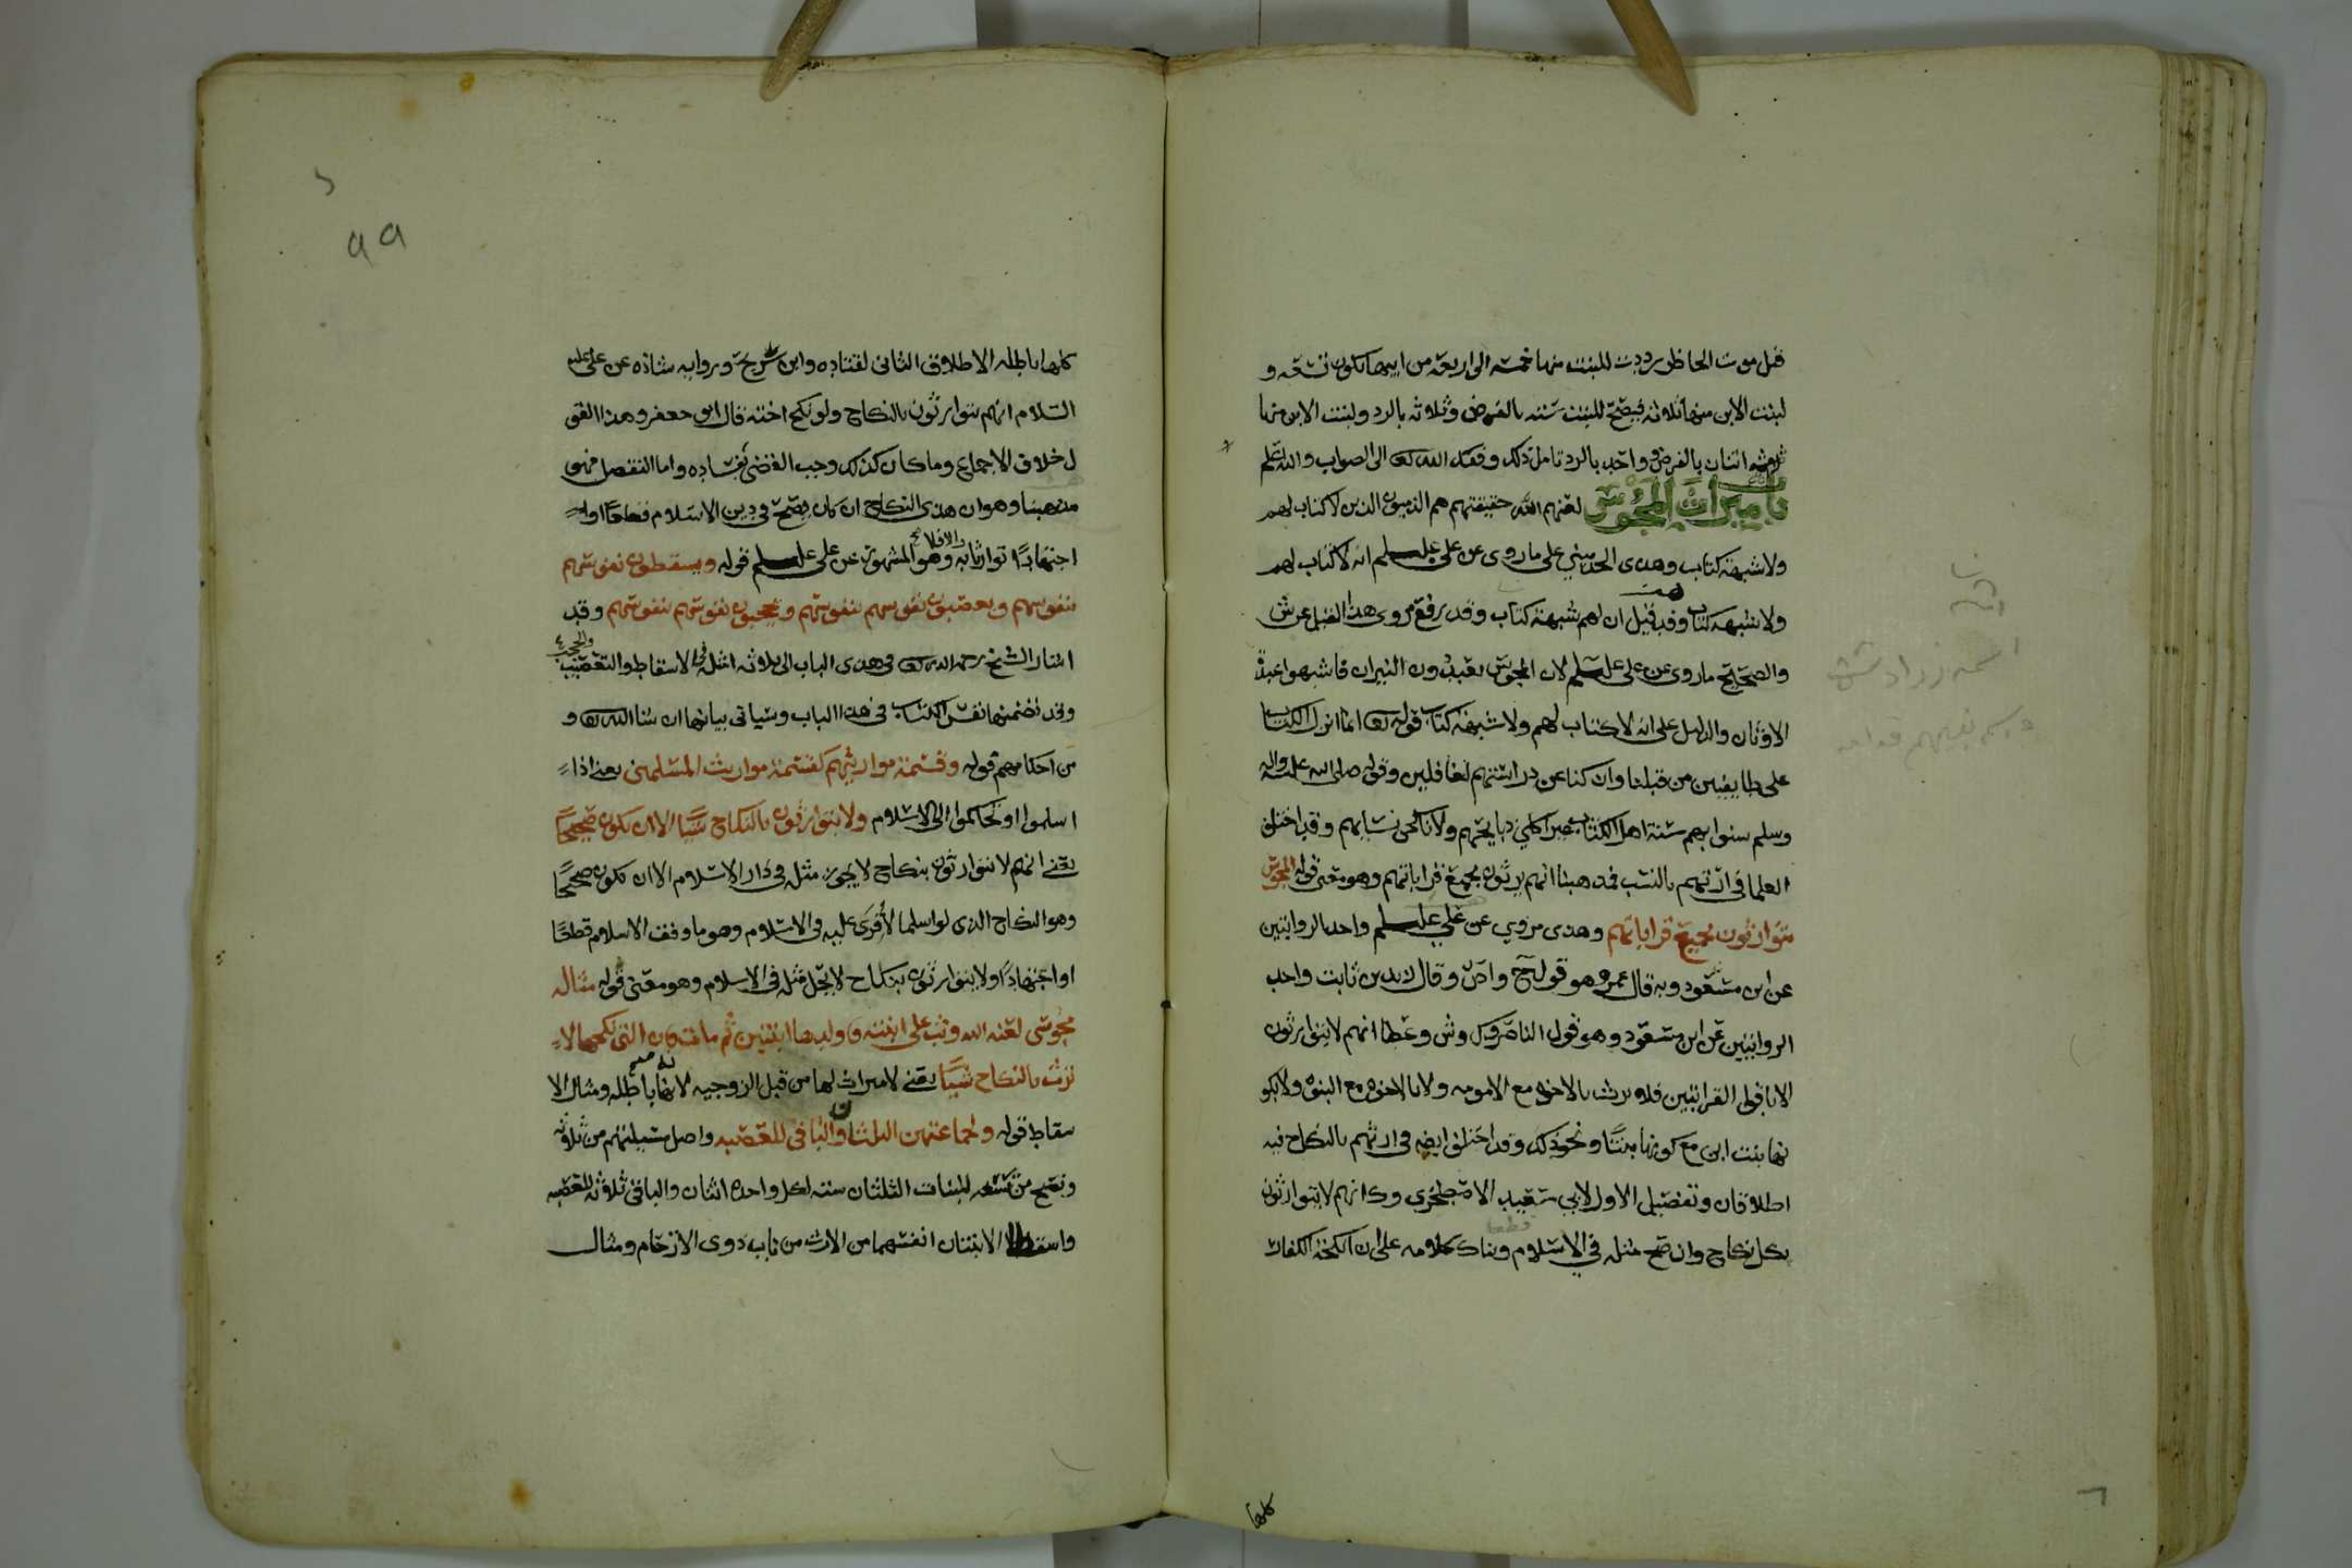 قبل موت الحاظر رددت للبنت منها خمسه الى اربعه من ابيها يكون تسعه و
لبنت الابن منها ثلاثه فيصح للبنت سته بالفرض وثلاثه بالرد ولبنت الابن منها
ثلاثه اثنان بالفرض و واحد بالرد تامل ذلك وفقك الله تعا الى الصواب والله اعلم
باب ميراث المجوس لعنهم الله حقيقتهم هم الذميون الذين لا كتاب لهم
ولا شبهة كتاب وهذى الحد مبني على ما روى عن علي علىسلم انه لا كتاب لهم
ولا شبهه كتاب وقد قيل ان لهم شبهة كتاب وقد رفع مروى هذا القيل عن ش
والصحيح ما روى عن علي علىسلم لان المجوس يعبدون النيران فاشبهوا عبدة
الاوثان والدليل على انه لا كتاب لهم ولا شبهة كتاب قوله تعا انما انزل الكتاب
على طايفتين من قبلنا وان كنا عن دراستهم لغافلين وقوله صلى الله عليه واله
وسلم سنوا بهم سنة اهل الكتاب غير اكلي ذبايحهم ولا ناكحي نسايهم وقد اختلف
العلما في ارثهم بالنسب فمذهبنا انهم يرثون بجميع قراباتهم وهو معنى قوله المجوس
يتوارثون بجميع قراباتهم وهذى مروي عن علي علىسلم واحد الروايتين
عن ابن مسعود وبه قال عمر وهو قول ح واص وقال زيد بن ثابت واحد
الروايتين عن ابن مسعود وهو قول الناصر وك وش وعطا انهم لا يتوارثون
الا باقوى القرابتين فلا يرث بالاخوه مع الامومه ولا بالاخوه مع البنوه ولا بكو
نها بنت ابن مع كونها بنتا ونحو ذلك وقد اختلف ايضه في ارثهم بالنكاح فيه
اطلاقان وتفصيل الاول لابي سعيد الاصطخري و انهم لا يتوارثون
بكل نكاح وان صح مثله في الاسلام وبناك كلامه على ان انكحة الكفار
كلها
٩٩
كلها باطله الاطلاق الثاني لقتاده وابن سريح وروايه شاذه عن علي عليه
السلام انهم يتوارثون بالنكاح ولو نكح اخته قال ابو جعفر وهذا القو
ل خلاف الاجماع وما كان كذلك وجب القضى بفساده واما التفصيل فهو
مذهبنا وهو ان هذى النكاح ان كان يصح في دين الاسلام قطعا او
اجتهادا توارثا به والا فلا وهو المشهور عن علي علىسلم قوله ويسقطون نفوسهم
بنفوسهم ويعصبون نفوسهم بنفوسهم ويحجبون نفوسهم بنفوسهم وقد
اشار الشيخ رحمه الله تعا في هذى الباب الى ثلاثه امثله في الاسقاط والتعصيب والحجب
وقد تضمنها نفس الكتاب في هذا الباب وسياتي بيانها ان شا الله تعا و
من احكامهم قوله وقسمة مواريثهم كقسمة مواريث المسلمين يعني اذا
اسلموا او تحاكموا الى الاسلام ولا يتوارثون بالنكاح شيا الا ان يكون صحيحا
يعني انهم لا يتوارثون بنكاح لا يجوز مثله في دار الاسلام الا ان يكون صحيحا
وهو النكاح الذى لو اسلما لاقرى عليه في الاسلام وهو ما وفق الاسلام قطعا
او اجتهادا ولا يتوارثون بنكاح لا يحل مثله في الاسلام وهو معنى قوله مثاله
مجوسي لعنه الله وثب على ابنته واولدها ابنتين ثم مات فان التي نكحها لا
ترث بالنكاح شيا يعني لا ميراث لها من قبل الزوجيه لانها باطله ومثال الا
سقاط قوله ولجماعتهن الثلثان والباقي للعصبه واصل مسيلتهم من ثلاثه
وتصح من تسعه للبنات الثلثان سته لكل واحده اثنان والباقي ثلاثه للعصبه
واسقط الابنتان انفسهما من الارث من باب ذوى الارحام ومثال